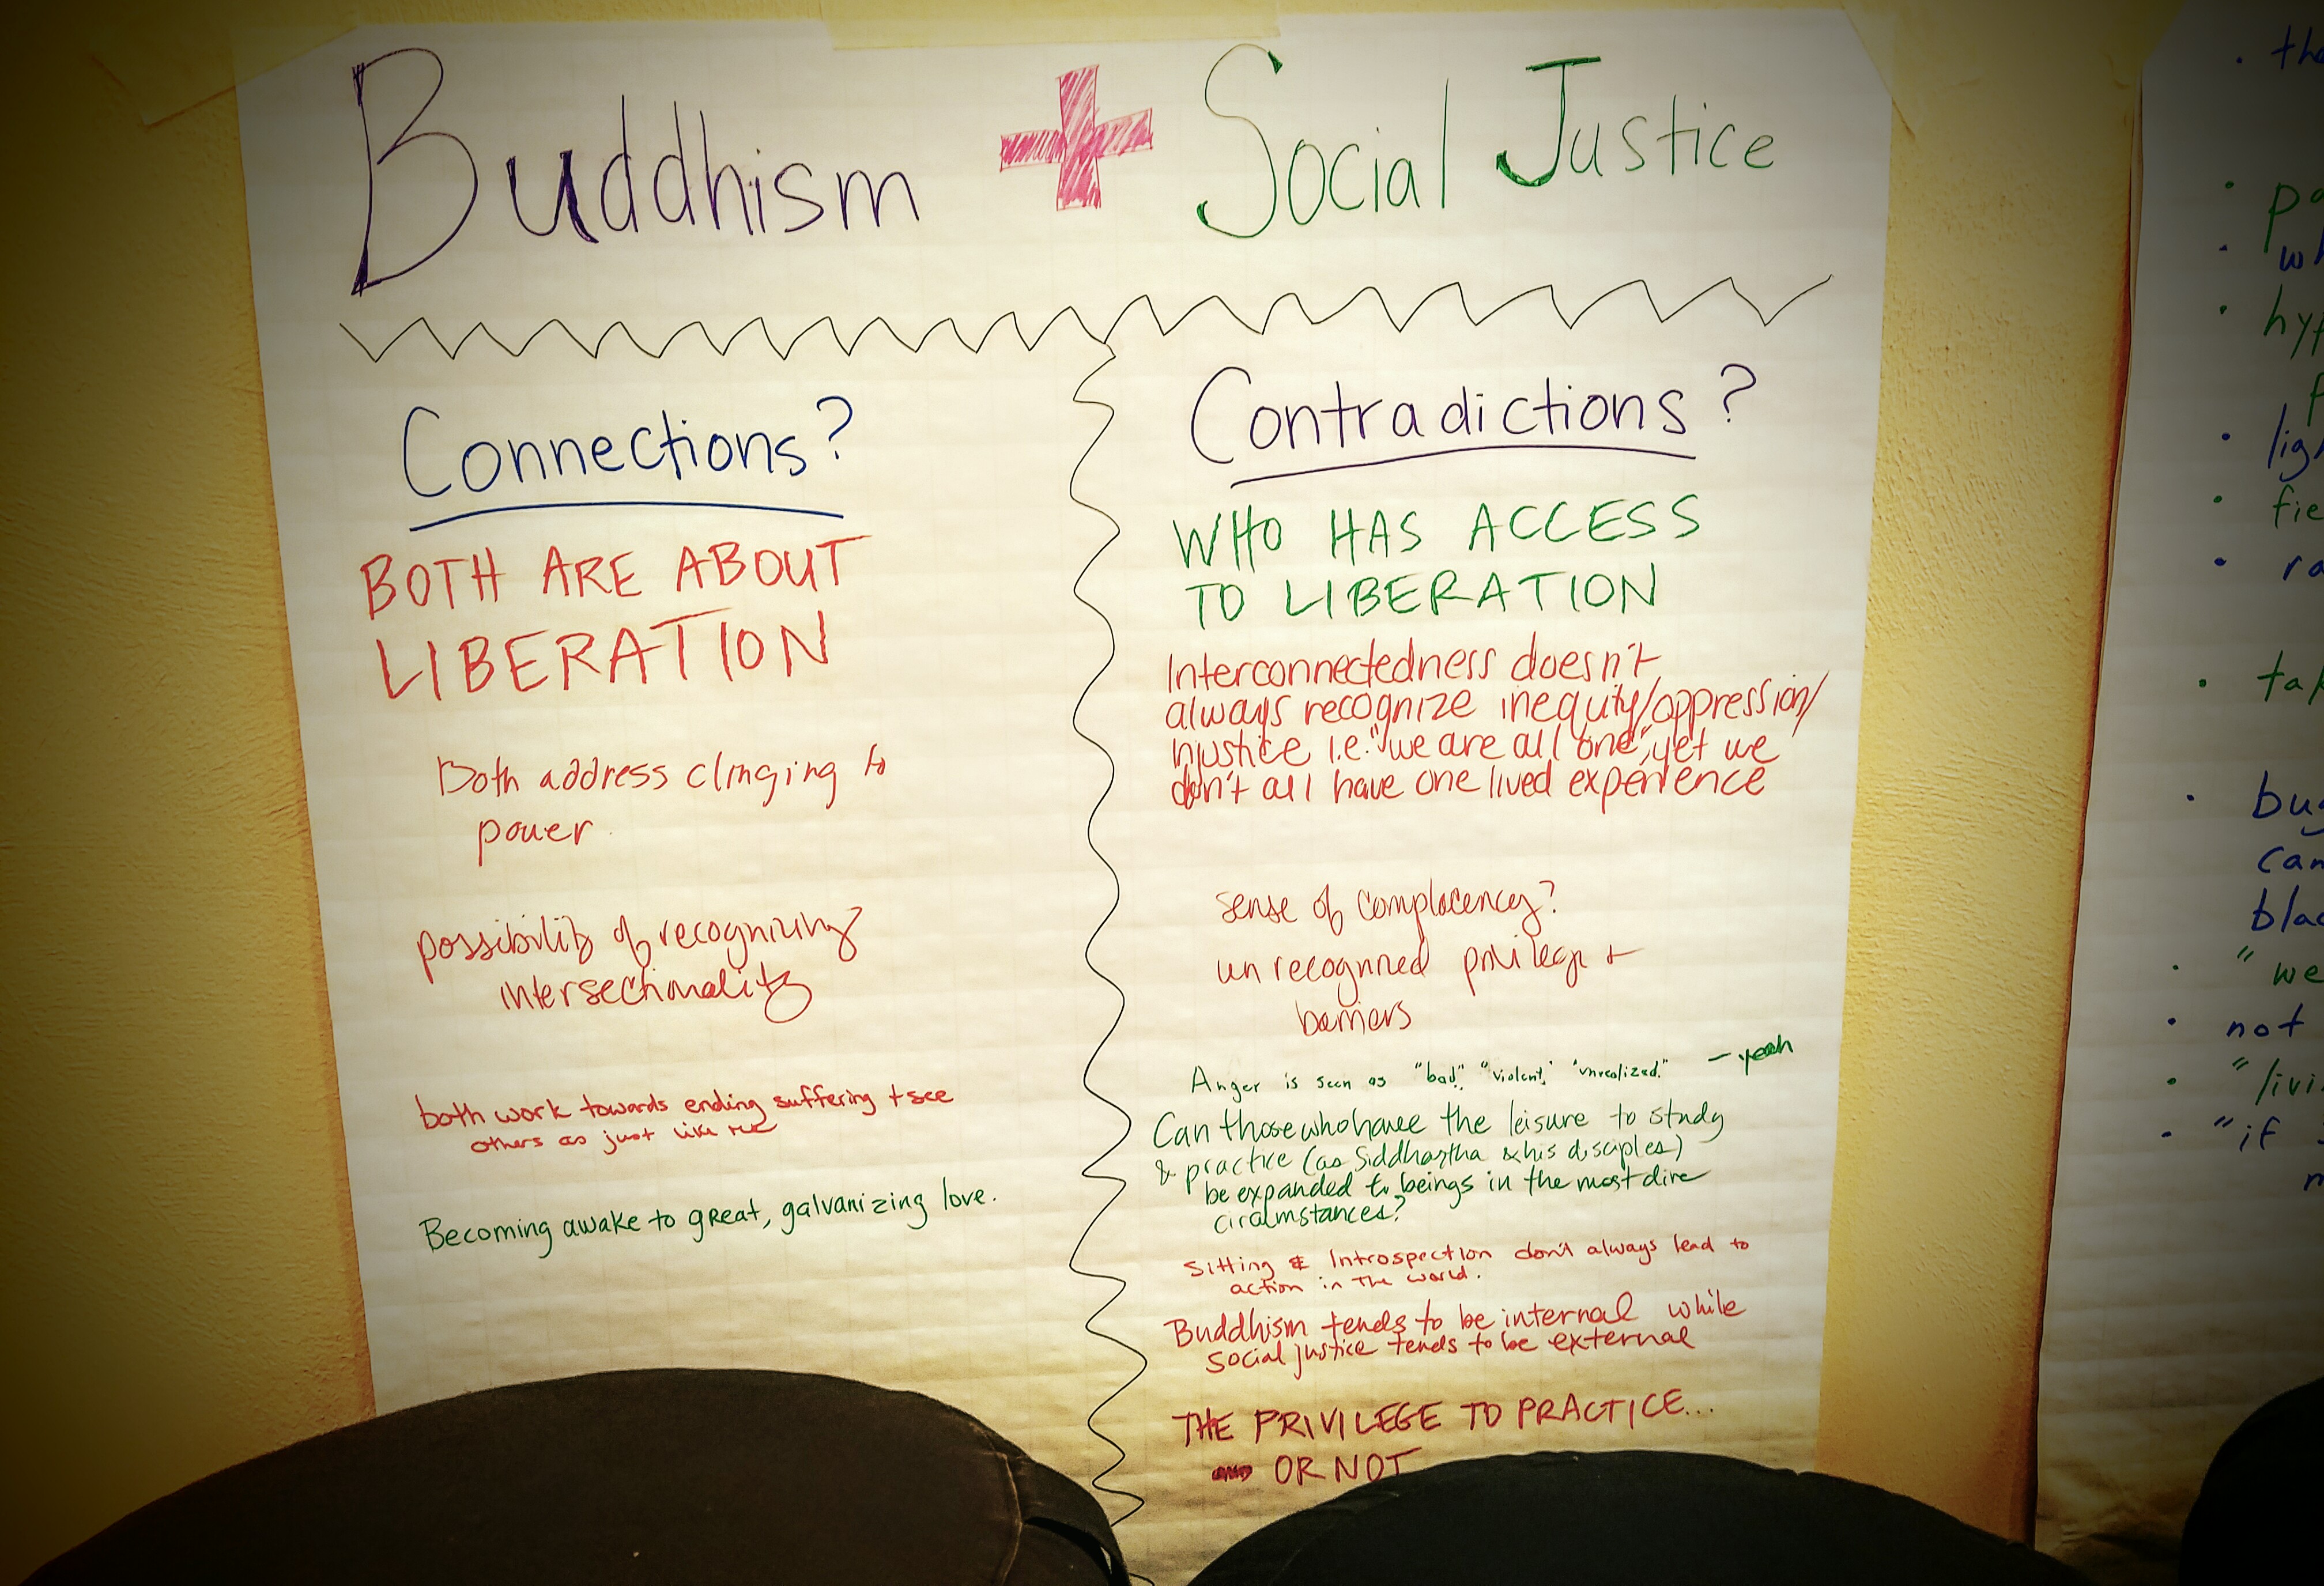 Buddhism + Social Justice
Connections?
BOTH ARE ABOUT
LIBERATION
Both address clinging to
power
possibility of recognizing
intersectionality
both work towards ending suffering + see
others as just like me
Becoming awake to great, galvanizing love.
Contradictions?
WHO HAS ACCESS
TO LIBERATION
Interconnectedness doesn't
always recognize inequity/oppression/
injustice i.e. "we are all one", yet we
don't all have one lived experience
sense of complacency?
unrecognized privilege +
barriers
Anger is seen as "bad," "violent," "unrealized." - yeah
Can those who have the leisure to study
& practice (as Siddhartha & his disciples)
be expanded to beings in the most dire
circumstances?
Sitting & Introspection don't always lead to
action in the world.
Buddhism tends to be internal while
social justice tends to be external
THE PRIVILEGE TO PRACTICE...
OR NOT
not
"we
"if